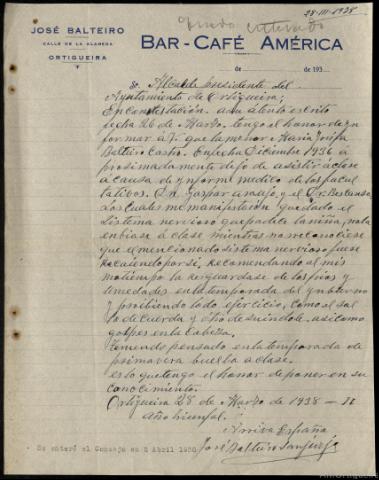 28-III-1938
Quedo enterado
JOSÉ BALTEIRO
CALLE DE LA ALAMEDA
ORTIGUEIRA
BAR-CAFÉ AMÉRICA
de de 193
Sr. Alcalde Presidente del
Ayuntamiento de Ortigueira;
En contestación a su atento escrito
fecha 26 de Marzo, tengo el honor de yn
formar a V. que la menor Maria Josefa
Balteiro Castro. En fecha Diciembre 1936 a
proximadamente dejo de asistir a clase
a causa de ynforme medico de los facul
tatibos. Dn. Gaspar Araujo, y el Sr. Bescansa
Los cuales me manifestaron que dado el
sistema nervioso que padecia la niña, no la
enbiase a clase mientras no reconociese
que el mencionado sistema nervioso fuese
decaiendo por si. Recomendando al mis
mo tiempo la resguardase de los frios y
umedades en la temporada del ynbierno
y proibiendo todo ejercicio, como el sal
to de cuerda y otro de su indole asi como
golpes en la cabeza.
Teniendo pensado en la temporada de
primavera buelba a clase.
es lo que tengo el honor de poner en su
conocimiento.
Ortigueira 28 de Marzo de 1938 - II
Año triunfal.
Arriva España
José Balteiro
Se enteró el Consejo en 2 Abril 1938